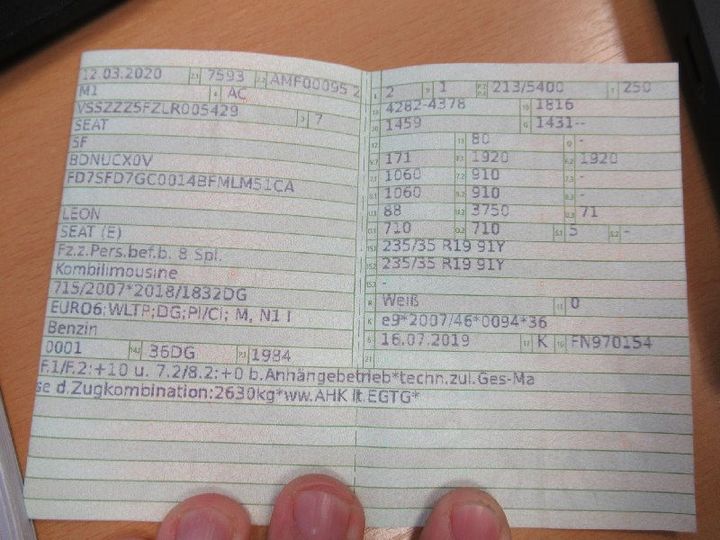 12.03.2020 2.1 7593 2.2 AMF00095 2
M1 4 AC
VSSZZZ5FZLR005429 3 7
SEAT
5F
BDNUCX0V
FD7SFD7GC0014BFMLM51CA
LEON
SEAT (E)
Fz.z.Pers.bef.b. 8 Spl.
Kombilimousine
715/2007*2018/1832DG
EURO6;WLTP;DG;PI/CI; M, N1 I
Benzin
0001 14.1 36DG P.1 1984
L 2 9 1 P.2 P.4 213/5400 T 250
18 4282-4378 19 1816
20 1459 G 1431--
12 - 13 80 Q -
V.7 171 F.1 1920 F.2 1920
7.1 1060 7.2 910 7.3 -
8.1 1060 8.2 910 8.3 -
U.1 88 U.2 3750 U.3 71
O.1 710 O.2 710 S.1 5 S.2 -
15.1 235/35 R19 91Y
15.2 235/35 R19 91Y
15.3 -
R Weiß 11 0
K e9*2007/46*0094*36
6 16.07.2019 17 K 16 FN970154
21
F.1/F.2:+10 u. 7.2/8.2:+0 b.Anhängebetrieb*techn.zul.Ges-Ma
se d.Zugkombination:2630kg*ww.AHK lt.EGTG*